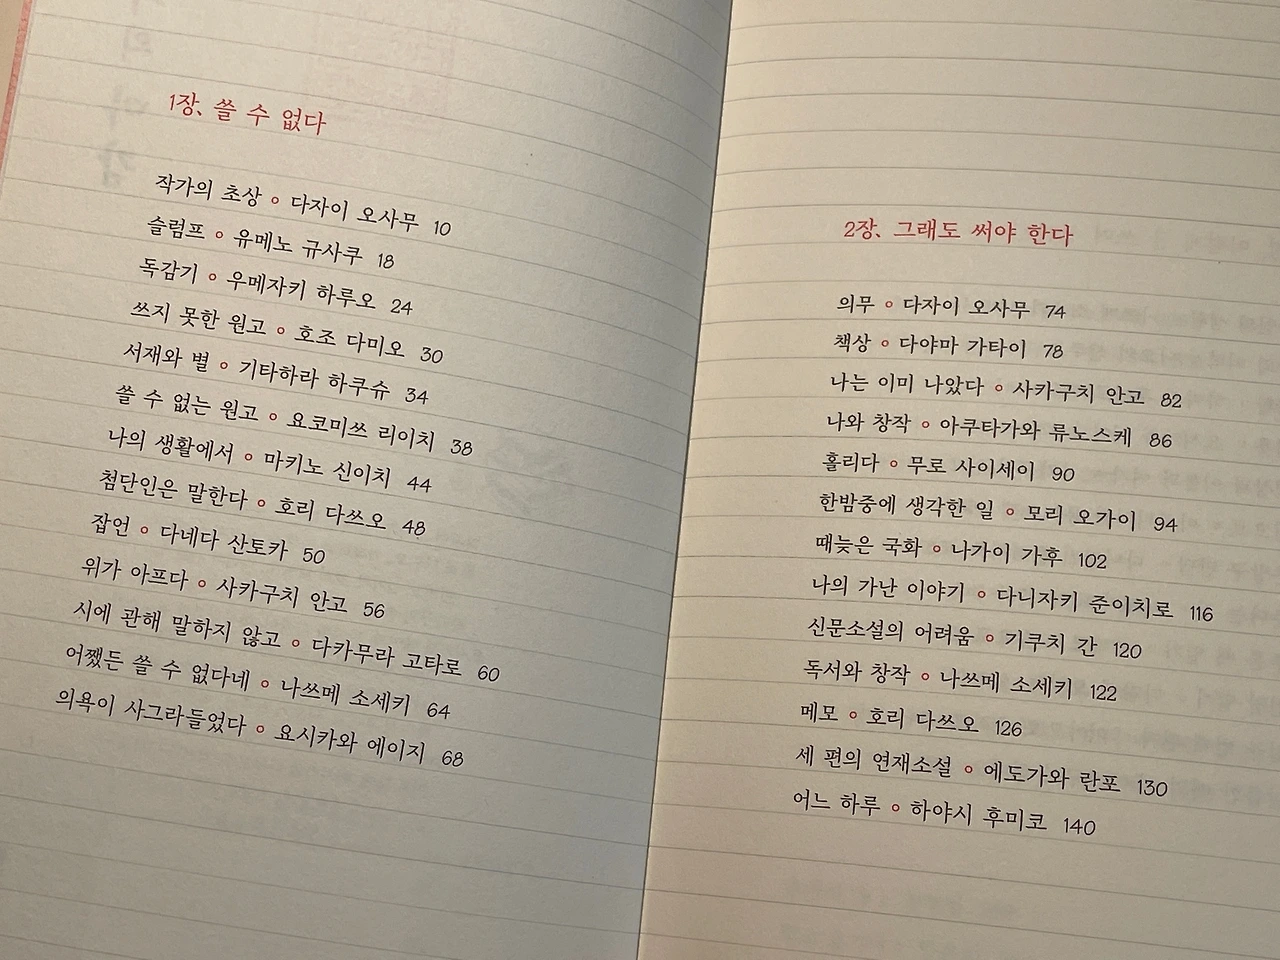 1장. 쓸 수 없다
작가의 초상 ○ 다자이 오사무 10
슬럼프 ○ 유메노 규사쿠 18
독감기 ○ 우메자키 하루오 24
쓰지 못한 원고 ○ 호조 다미오 30
서재와 별 ○ 기타하라 하쿠슈 34
쓸 수 없는 원고 ○ 요코미쓰 리이치 38
나의 생활에서 ○ 마키노 신이치 44
첨단인은 말한다 ○ 호리 다쓰오 48
잡언 ○ 다네다 산토카 50
위가 아프다 ○ 사카구치 안고 56
시에 관해 말하지 않고 ○ 다카무라 고타로 60
어쨌든 쓸 수 없다네 ○ 나쓰메 소세키 64
의욕이 사그라들었다 ○ 요시카와 에이지 68
2장. 그래도 써야 한다
의무 ○ 다자이 오사무 74
책상 ○ 다야마 가타이 78
나는 이미 나았다 ○ 사카구치 안고 82
나와 창작 ○ 아쿠타가와 류노스케 86
홀리다 ○ 무로 사이세이 90
한밤중에 생각한 일 ○ 모리 오가이 94
때늦은 국화 ○ 나가이 가후 102
나의 가난 이야기 ○ 다니자키 준이치로 116
신문소설의 어려움 ○ 기쿠치 간 120
독서와 창작 ○ 나쓰메 소세키 122
메모 ○ 호리 다쓰오 126
세 편의 연재소설 ○ 에도가와 란포 130
어느 하루 ○ 하야시 후미코 140